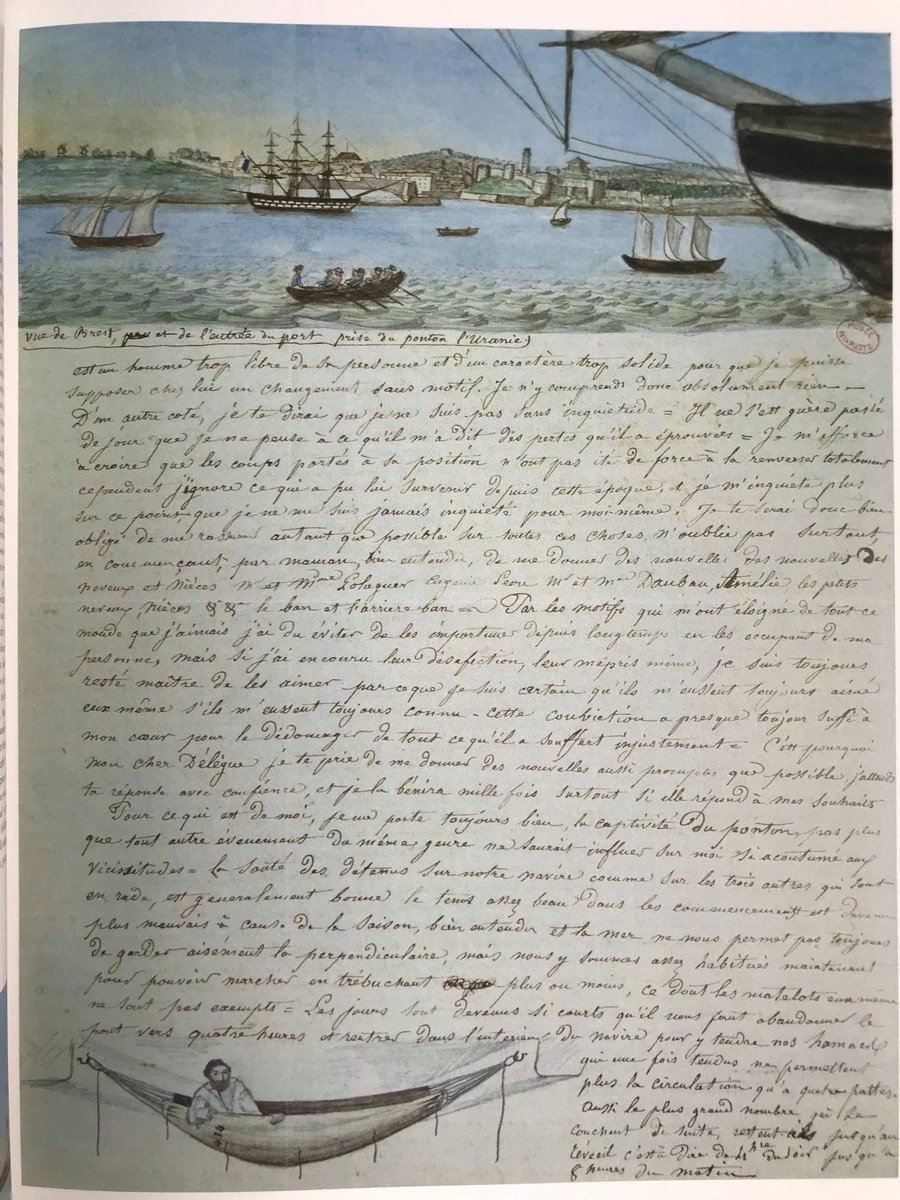 Vue de Brest, et de l'entrée du port prise du ponton l'Uranie)
est un homme trop libre de sa personne et d'un caractère trop solide pour que je puisse
supposer chez lui un changement sans motif. Je n'y comprends donc absolument rien –
D'un autre coté, je te dirai que je ne suis pas sans inquietude = Il ne s'est guère passé
de jour que je ne pense à ce qu'il m'a dit des pertes qu'il a éprouvées = Je m'efforce
à croire que les coups portés à sa position n'ont pas été de force à la renverser totalement
cependent j'ignore ce qui a pu lui survenir depuis cette époque, et je m'inquiete plus
sur ce point que je ne me suis jamais inquieté pour moi-même. Je te serai donc bien
obligé de me autant que possible sur toutes ces choses, n'oublie pas surtout,
en commençant par maman, bien entendu, de me donner des nouvelles des nouvelles Des
neveux et Nièces Mr et Mme Eugene Léon Mr et Mme Daubau, Amélie les petits
neveux nièces &c &c le ban et l'arriere ban = Par les motifs qui m'ont éloigné de tout ce
monde que j'aimais j'ai du éviter de les importuner depuis longtemps en les occupant de ma
personne, mais si j'ai encouru leur désafection, leur mépris même, je suis toujours
resté maître de les aimer parceque je suis certain qu'ils m'eussent toujours aimé
eux même s'ils m'eussent toujours connu – cette conviction a presque toujour suffi à
mon cœur pour le dédomager de tout ce qu'il a souffert injustement = C'est pourquoi
mon cher Délègue je te prie de me donner des nouvelles aussi promptes que possible j'attends
ta réponse avec confience, et je la bénirai mille fois surtout si elle répond à mes souhaits
Pour ce qui est de moi, je me porte toujours bien, la captivité du ponton, pas plus
que tout autre évenement du même genre ne saurait influer sur moi si acoutumé aux
vicissitudes = La santé des détenus sur notre navire comme sur les trois autres qui sont
en rade, est generalement bonne le tems assez beau dans les commencements est devenu
plus mauvais à cause de la saison, bien entendu et la mer ne nous permet pas toujours
de garder aisément la perpendiculaire, mais nous y sommes assez habitués maintenant
pour pouvoir marcher en trébuchant plus ou moins, ce dont les matelots eux même
ne sont pas exempts = Les jours sont devenus si courts qu'il nous faut abandonner le
pont vers quatre heures et rentrer dans l'interieur du navire pour y tendre nos hamacs
qui une fois tendus ne permettent
plus la circulation qu'a quatre pattes.
Aussi le plus grand nombre qui se
couchent de suite, restent ils jusqu'au
réveil c'est à dire de du soir jusqu'a
heures du matin